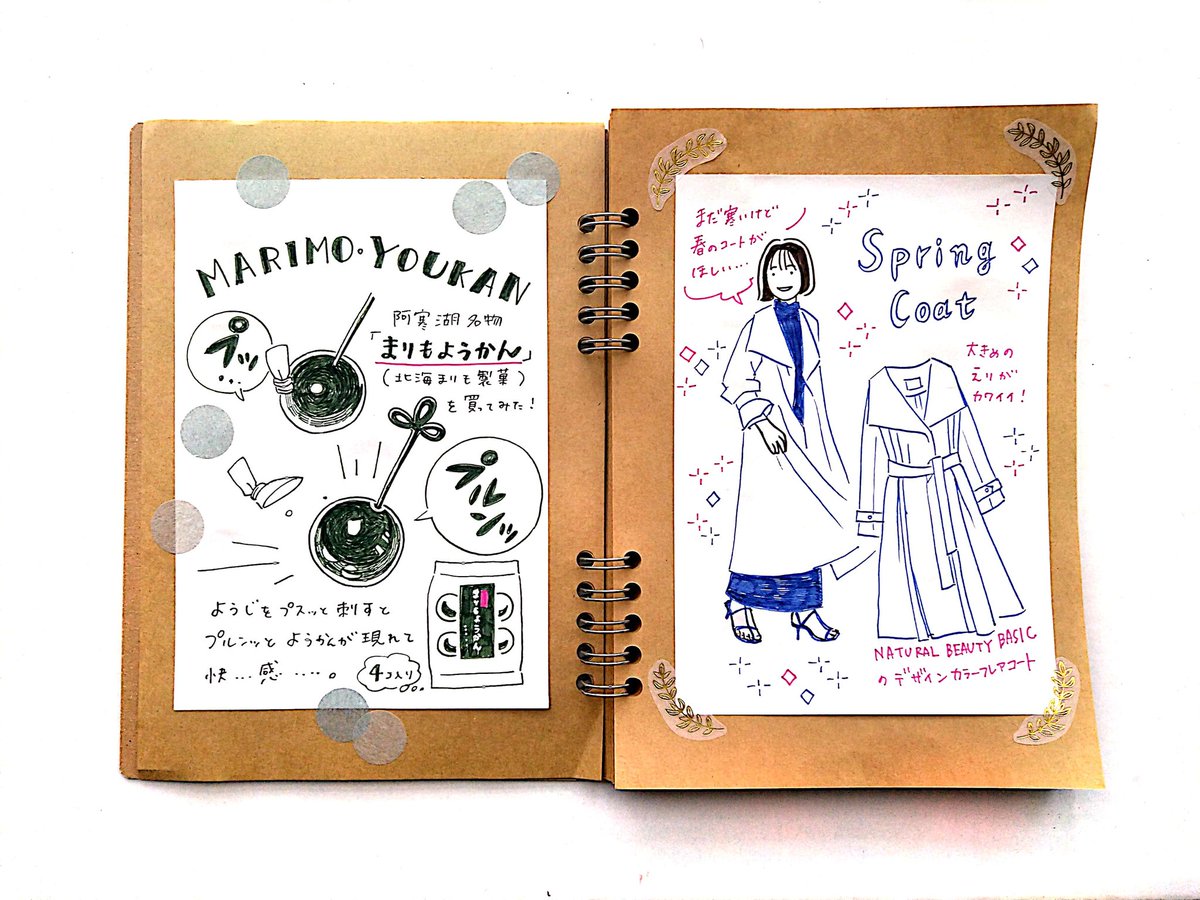 MARIMO・YOUKAN
プッ…
阿寒湖名物
「まりもようかん」
(北海まりも製菓)
を買ってみた!
プルンッ
まりもようかん
ようじをプスッと刺すと
プルンッとようかんが現れて
快…感……。
4コ入り
まだ寒いけど
春のコートが
ほしい…
Spring
Coat
大きめの
えりが
カワイイ!
NATURAL BEAUTY BASIC
のデザインカラーフレアコート